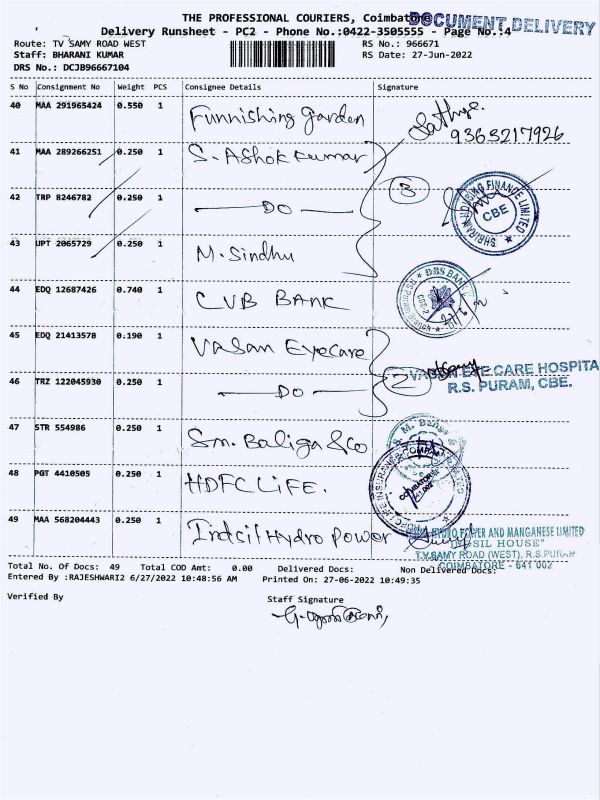 THE PROFESSIONAL COURIERS, Coimbatore
DOCUMENT DELIVERY
Delivery Runsheet - PC2 - Phone No.:0422-3505555 - Page No.:4
Route: TV SAMY ROAD WEST
RS No.: 966671
Staff: BHARANI KUMAR
RS Date: 27-Jun-2022
DRS No.: DCJB96667104
S No Consignment No Weight PCS Consignee Details Signature
40 MAA 291965424 0.550 1 Funnishing garden Sathya.
9363217926
41 MAA 289266251 0.250 1 S. Ashok kumar
3
42 TRP 8246782 0.250 1 DO SHRIRAM HOUSING FINANCE LIMITED CBE
43 UPT 2065729 0.250 1 M. Sindhu
44 EDQ 12687426 0.740 1 CUB BANK DBS BANK
45 EDQ 21413578 0.190 1 Vasan Eyecare
2 VASAN EYE CARE HOSPITA
R.S. PURAM, CBE.
46 TRZ 122045930 0.250 1 DO
47 STR 554986 0.250 1 Sm. Baliga & Co
48 PGT 4410505 0.250 1 HDFC LiFE. HDFC LIFE INSURANCE COMPANY LIMITED COIMBATORE
49 MAA 568204443 0.250 1 Indsil Hydro Power HYDRO POWER AND MANGANESE LIMITED
"INDSIL HOUSE"
T.V.SAMY ROAD (WEST), R.S.PURAM
COIMBATORE - 641 002
Total No. Of Docs: 49 Total COD Amt: 0.00 Delivered Docs: Non Delivered Docs:
Entered By :RAJESHWARI2 6/27/2022 10:48:56 AM Printed On: 27-06-2022 10:49:35
Verified By Staff Signature